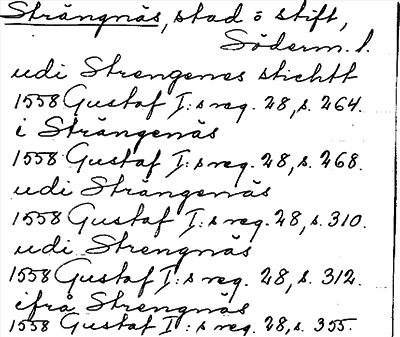 Strängnäs, stad o stift,
Söderm. l.
udi Strengenes stichtt
1558 Gustaf I:s reg. 28, s. 264.
i Strängenäs
1558 Gustaf I:s reg. 28, s. 268.
udi Strängenäs
1558 Gustaf I:s reg. 28, s. 310.
udi Strengnäs
1558 Gustaf I:s reg. 28, s. 312.
ifrå Strengnäs
1558 Gustaf I:s reg. 28, s. 355.